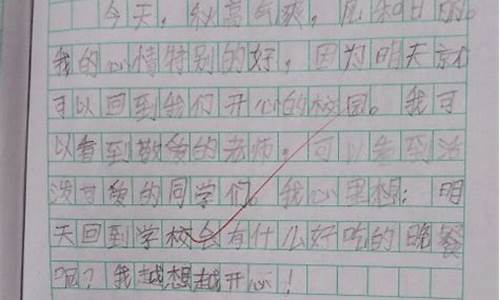 今天，秋高气爽，风和日丽。
我的心情特别的好，因为明天就
可以回到我们开心的校园。我可
以看到敬爱的老师。可以看到活
泼可爱的同学们。我心里想：明
天回到学校会有什么好吃的晚餐
呢？我越想越开心！